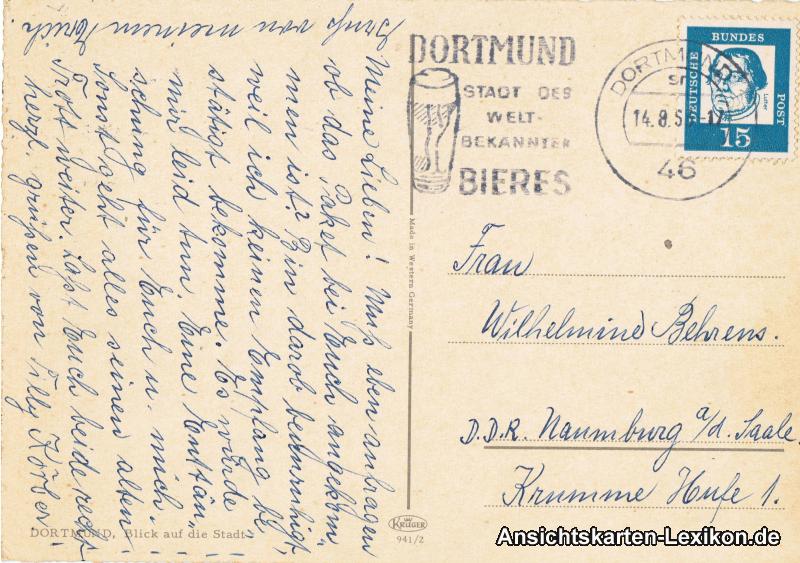 Meine Lieben! Muß eben anfragen
ob das Paket bei Euch angekom-
men ist? Bin darob beunruhigt,
weil ich keinen Empfang be,
stätigt bekomme. Es würde
mir leid tun. Eine Enttäu,,
schung für Euch u. mich.!!
Sonst geht alles seinen alten
Trott weiter. Laßt Euch beide recht
herzl. grüßen von Tilly Körber!
von meinem Erich
DORTMUND
STADT DES
WELT-
BEKANNTEN
BIERES
DORTMUND
14.8.
46
DEUTSCHE BUNDES POST
Luther
15
Frau
Wilhelmine Behrens.
D.D.R. Naumburg a/d. Saale
Krumme Hufe 1.
Made in Western Germany
KRÜGER
941/2
DORTMUND, Blick auf die Stadt
Ansichtskarten-Lexikon.de